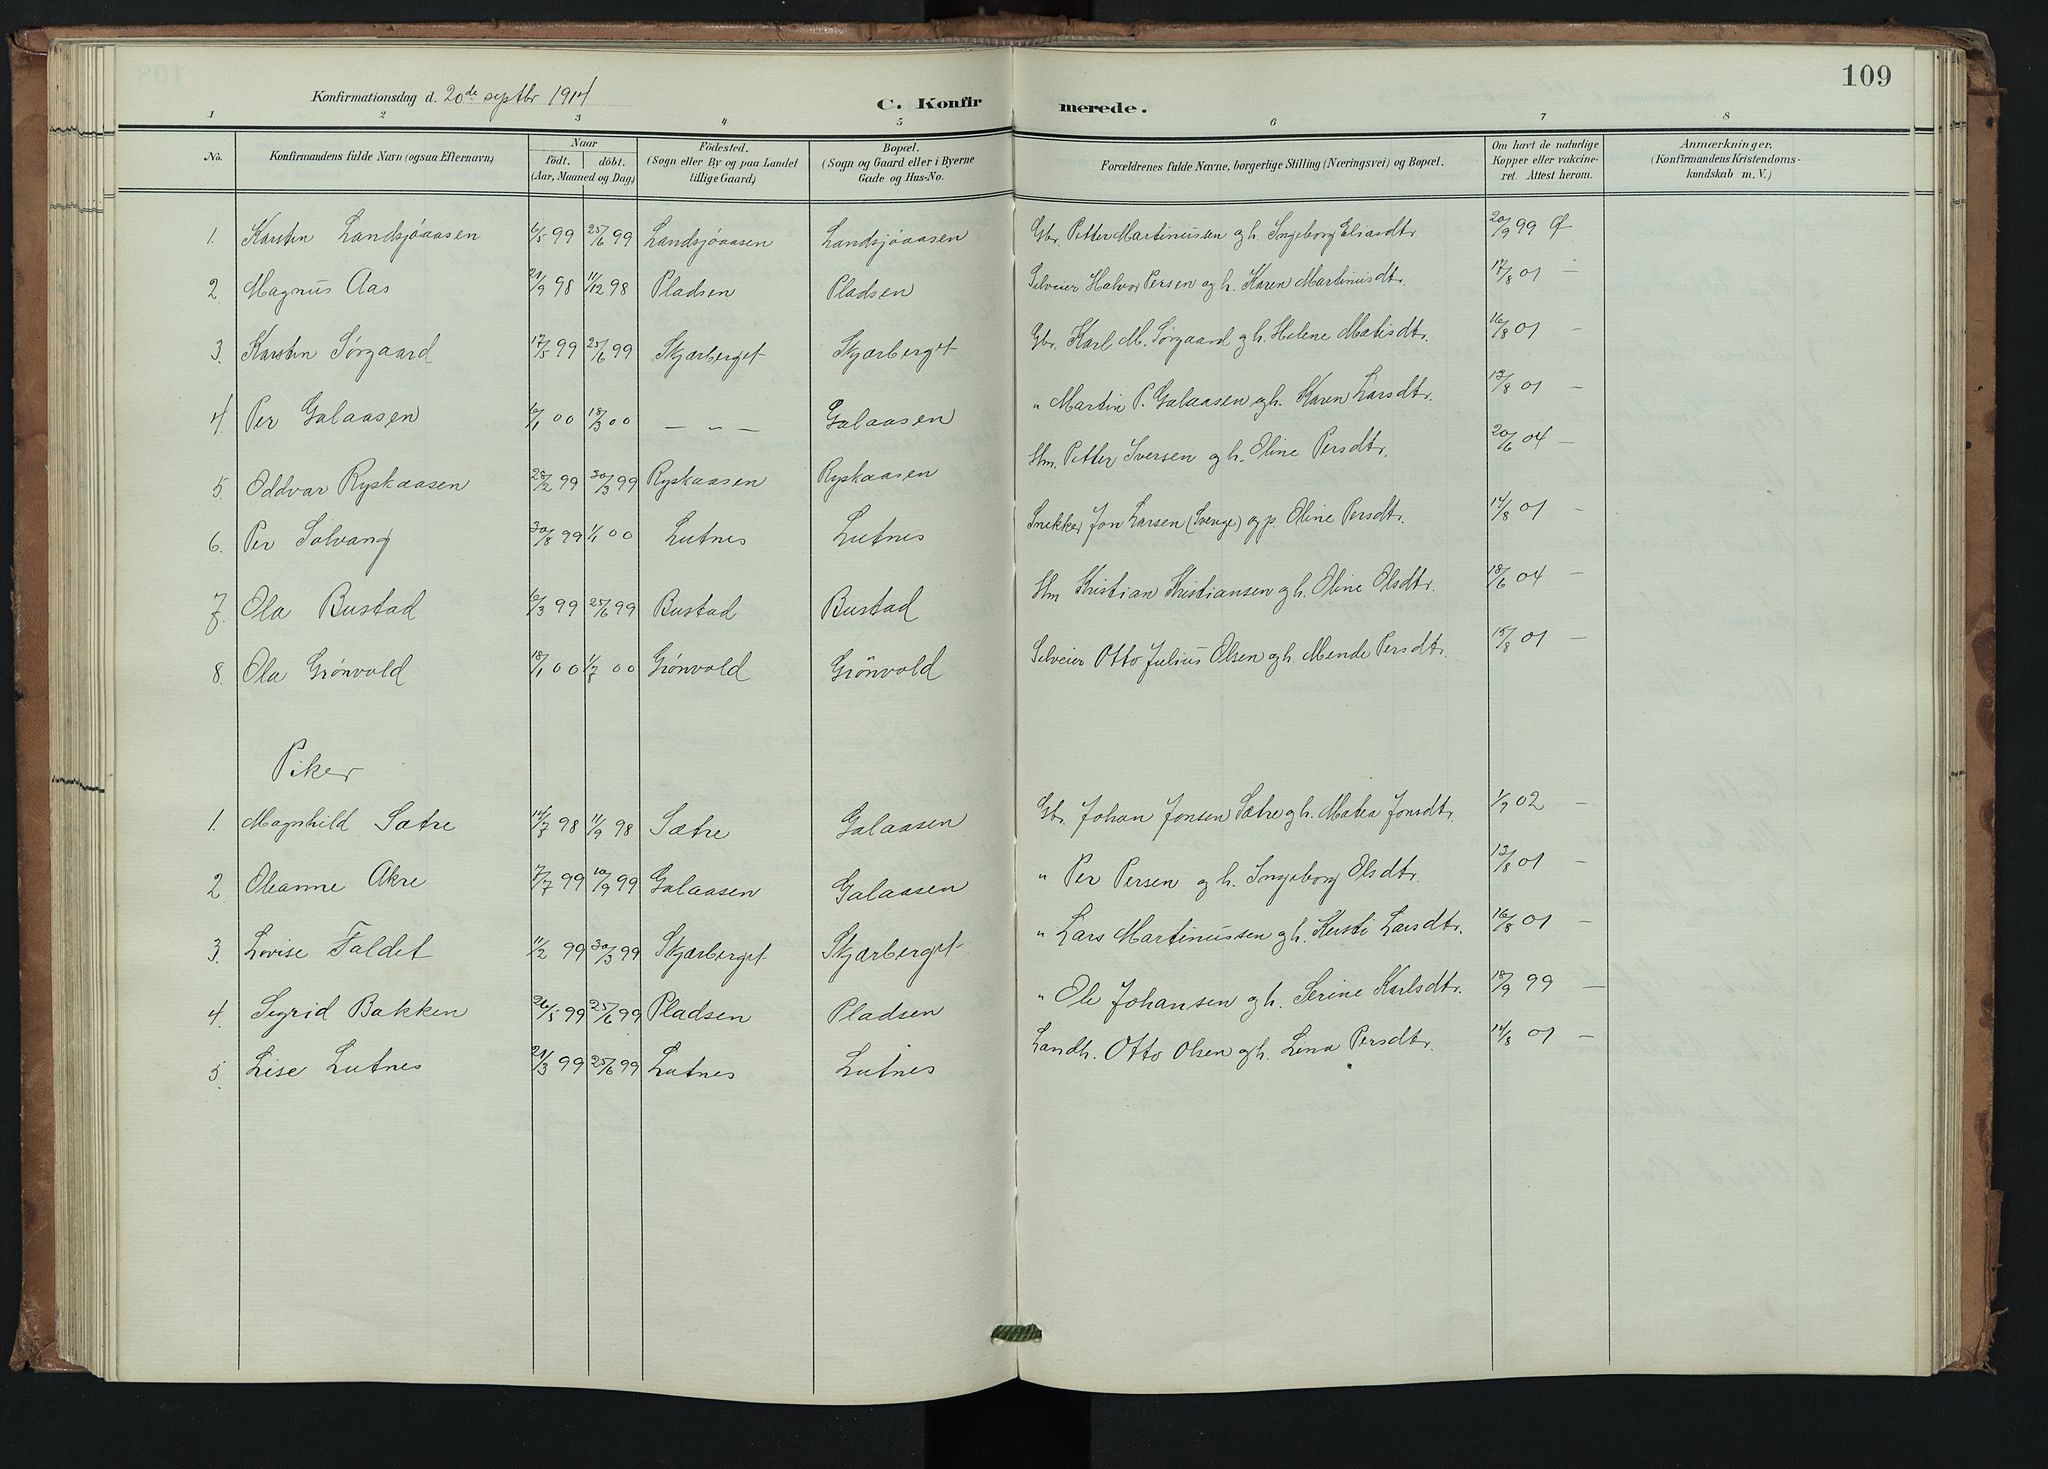 109
Konfirmationsdag d. 20de septbr 1914
C. Konfirmerede.
1 2 3 4 5 6 7 8
No. Konfirmandens fulde Navn (ogsaa Efternavn) Naar födt. döbt. (Aar, Maaned og Dag) Födested. (Sogn eller By og paa Landet tillige Gaard) Bopæl. (Sogn og Gaard eller i Byerne Gade og Hus-No. Forældrenes fulde Navne, borgerlige Stilling (Næringsvei) og Bopæl. Om havt de naturlige Kopper eller vakcineret. Attest herom. Anmærkninger. (Konfirmandens Kristendomskundskab m. V.)
1. Karsten Landsjøaasen 6/5 99 25/6 99 Landsjøaasen Landsjøaasen Gbr. Petter Martinussen og h. Ingeborg Eliasdtr. 20/9 99 Ø
2 Magnus Aas 21/9 98 11/12 98 Pladsen Pladsen Selveier Halvor Persen og h. Karen Martinusdtr. 17/8 01 –
3. Karsten Sørgaard 17/5 99 25/6 99 Skjærberget Skjærberget Gbr. Karl M. Sørgaard og h. Helene Matisdtr. 16/8 01 –
4. Per Galaasen 6/1 00 18/3 00 – " – Galaasen " Martin P. Galaasen og h. Karen Larsdtr. 13/8 01 –
5. Oddvar Ryskaasen 28/2 99 30/3 99 Ryskaasen Ryskaasen Hm. Petter Iversen og h. Oline Persdtr. 20/6 04 –
6. Per Solvang 30/8 99 1/1 00 Lutnes Lutnes Snekker Jon Larsen (Sverige) og p. Oline Persdtr. 14/8 01 –
7. Ola Bustad 6/3 99 25/6 99 Bustad Bustad Hm Kristian Kristiansen og h. Oline Olsdtr. 18/6 04 –
8. Ola Grønvold 18/1 00 1/7 00 Grønvold Grönvold Selveier Otto Julius Olsen og h. Mende Persdtr. 15/8 01 –
Piker
1. Magnhild Sætre 14/7 98 11/9 98 Sætre Galaasen Gbr. Johan Jonsen Sætre og h. Matea Jonsdtr. 1/9 02 –
2. Oleanne Akre 7/7 99 10/9 99 Galaasen Galaasen " Per Persen og h. Ingeborg Olsdtr. 13/8 01 –
3. Lovise Faldet 11/2 99 30/3 99 Skjærberget Skjærberget " Lars Martinussen og h. Kersti Larsdtr. 16/8 01 –
4. Sigrid Bakken 26/5 99 25/6 99 Pladsen Pladsen " Ole Johansen og h. Serine Karlsdtr. 18/9 99 –
5. Lise Lutnes 21/3 99 25/6 99 Lutnes Lutnes Landh. Otto Olsen og h. Lina Persdtr. 14/8 01 –